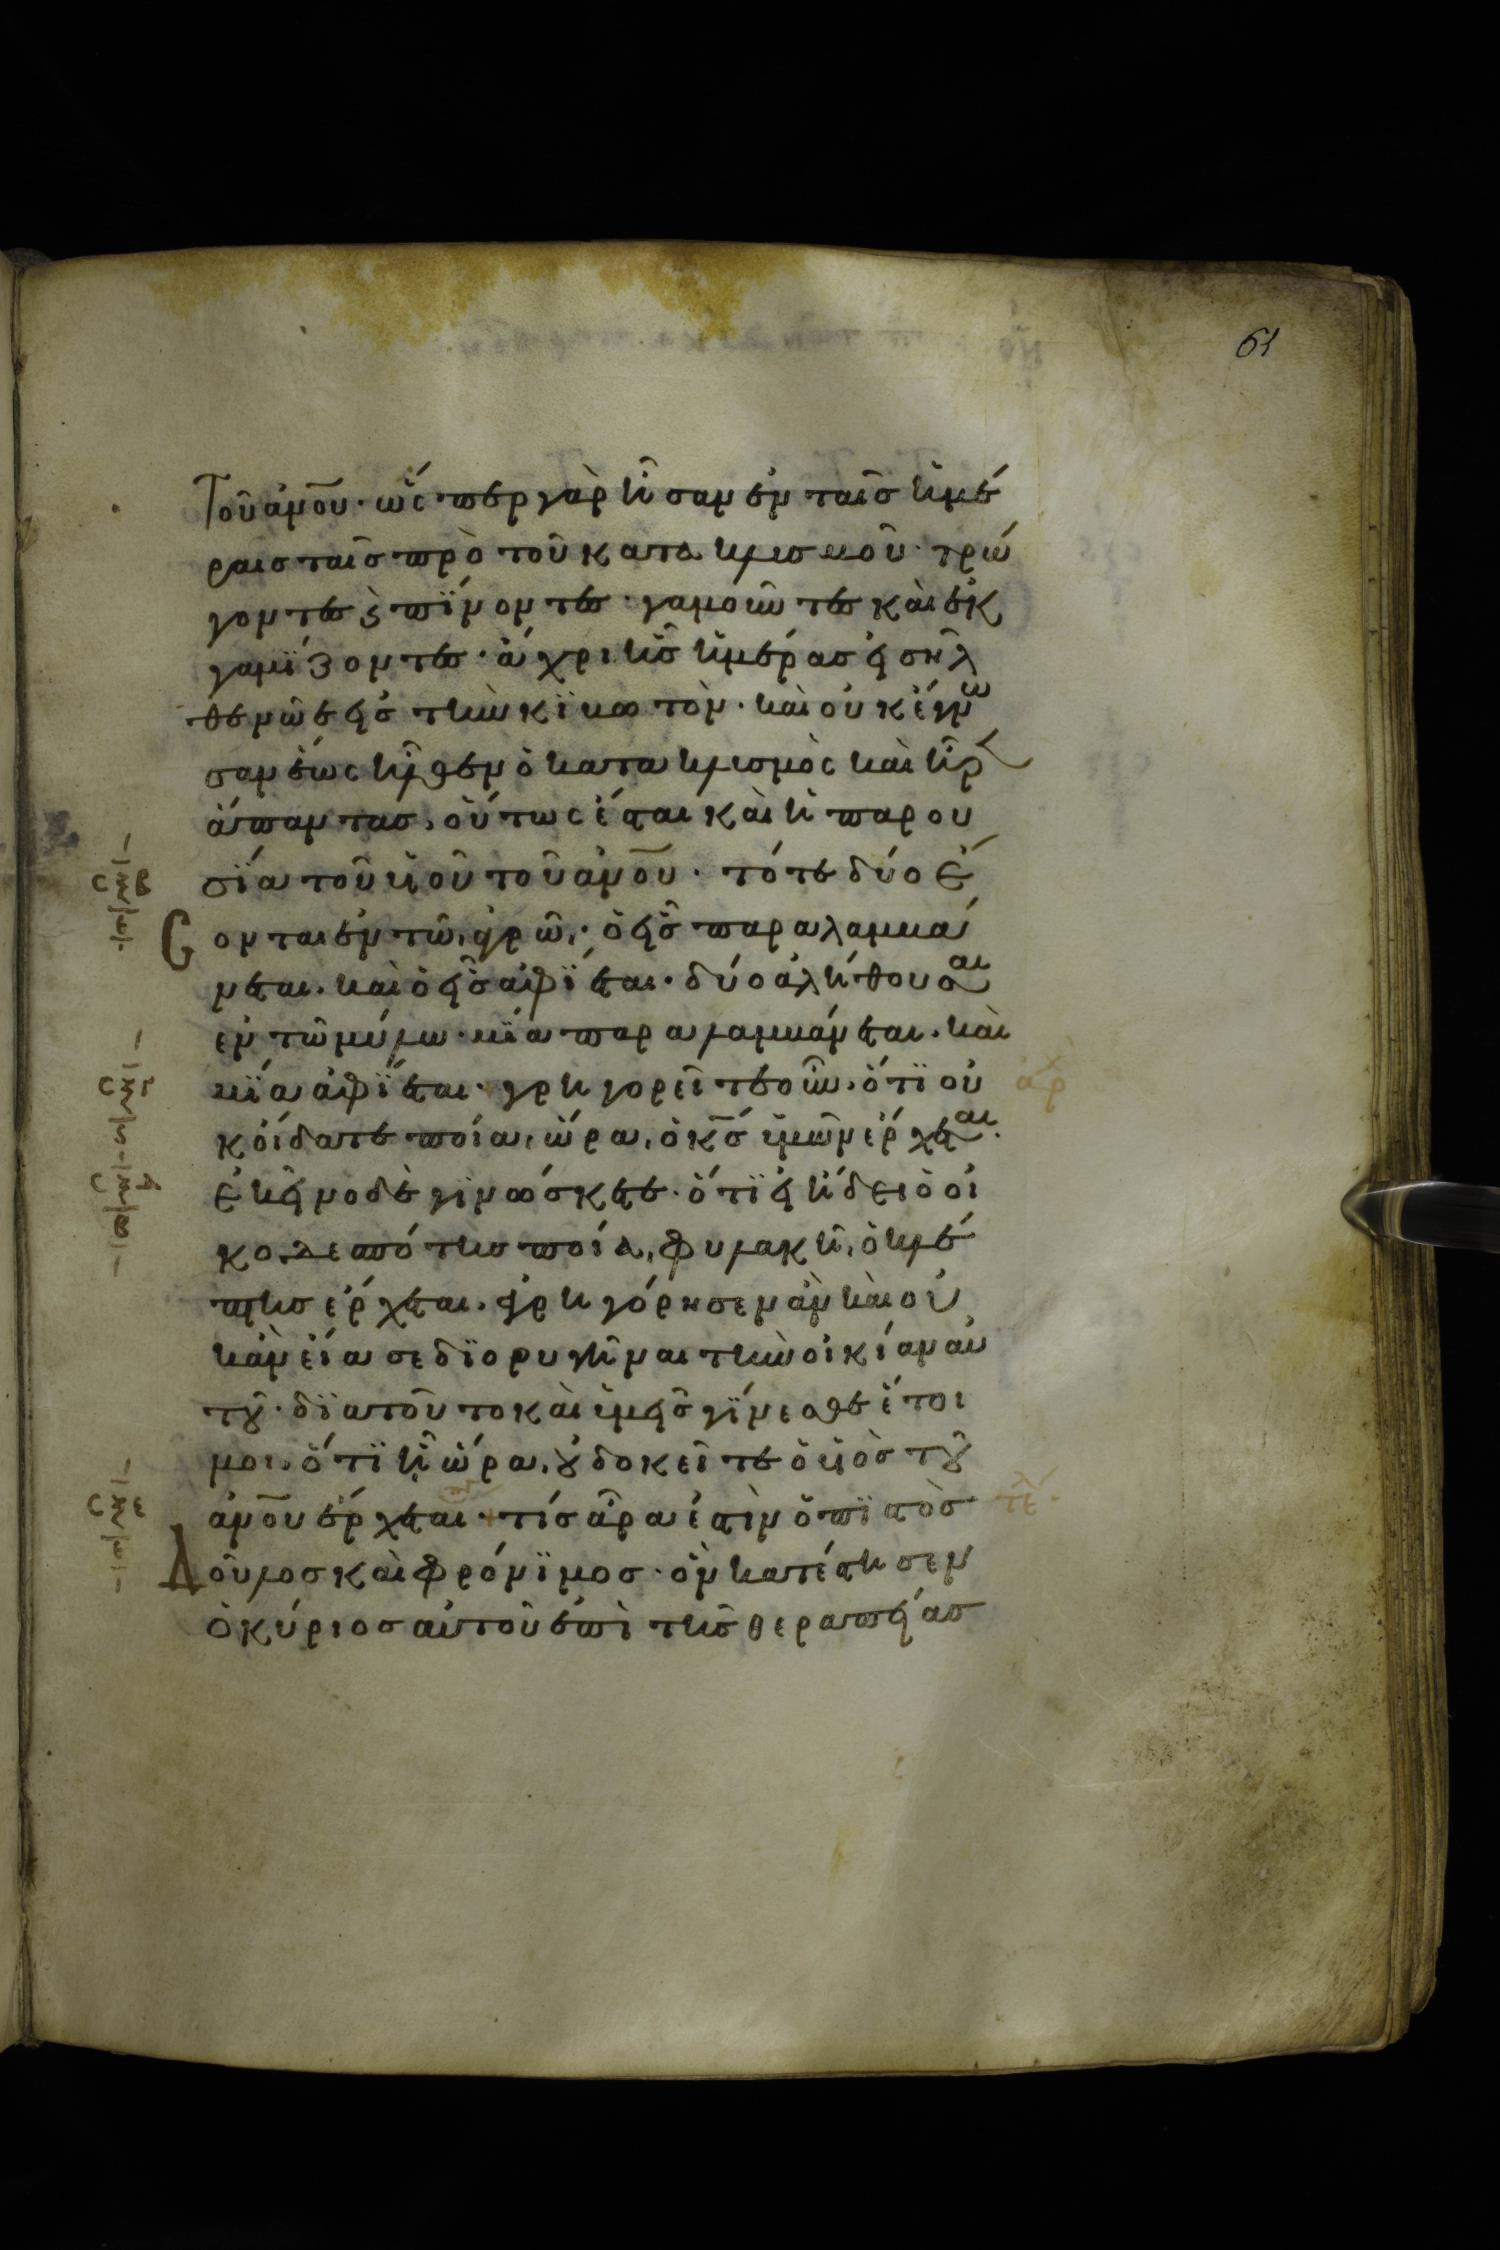 61
τοῦ ἀν̅ου· ὥσπερ γὰρ ἦσαν ἐν ταῖς ἡμέ
ραις ταῖς πρὸ τοῦ κατακλυσμοῦ· τρώ
γοντες ϗ πίνοντες· γαμοῦντες καὶ ἐκ
γαμίζοντες· ἄχρι ἧς ἡμέρας εἰσῆλ
θε νῶε εἰς τὴν κιβωτόν· καὶ οὐκ ἔγνω
σαν ἕως ἦλθεν ὁ κατακλυσμὸς καὶ ἦρεν
ἅπαντας, οὕτως ἔσται καὶ ἡ παρου
σία τοῦ υἱοῦ τοῦ ἀν̅ου· τότε δύο ἔ
σονται ἐν τῷ ἀγρῷ· ὁ εἷς παραλαμβά
νεται. καὶ ὁ εἷς ἀφίεται· δύο ἀλήθουσαι
ἐν τῷ μύλω· μία παραλαμβάνεται. καὶ
μία ἀφίεται· γρηγορεῖτε οὖν. ὅτι οὐ
κ οἴδατε ποία ὥρα ὁ κ̅ς ὑμῶν ἔρχεται.
ἐκεῖνο δὲ γινώσκετε· ὅτι εἰ ᾔδει ὁ οἰ
κοδεσπότης ποία φυλακῆ ὁ κλέ
πτης ἔρχεται. ἐγρηγόρησεν ἂν καὶ οὐ
κ ἂν εἴασε διορυγῆναι τὴν οἰκίαν αὐ
τοῦ· διὰ τοῦτο καὶ ὑμεῖς γίνεσθε ἕτοι
μοι. ὅτι ἧ ὥρα οὐ δοκεῖτε ὁ υἱὸς τοῦ
ἀν̅ου ἔρχεται· τίς ἄρα ἐστὶν ὁ πιστὸς
Δοῦλος καὶ φρόνιμος· ὃν κατέστησεν
ὁ κύριος αὐτοῦ ἐπὶ τῆς θεραπείας
σξβ
σξγ
σξδ
σξε
ἀρχ
τέλ